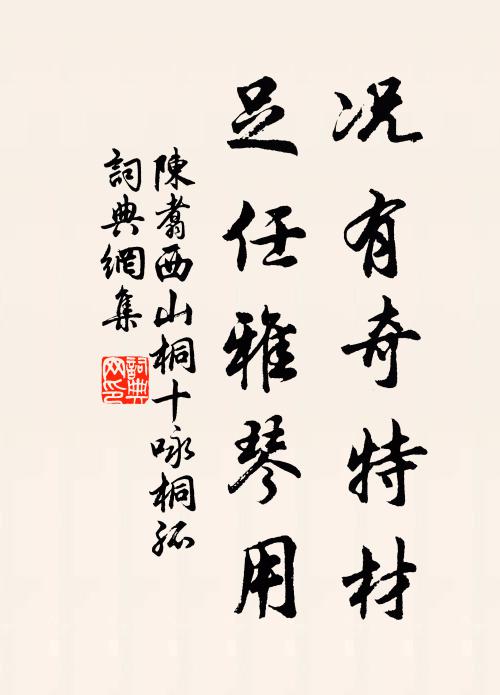 况有奇特材
足任雅琴用
陳翥西山桐十咏桐孤
詞典網集
詞典网印